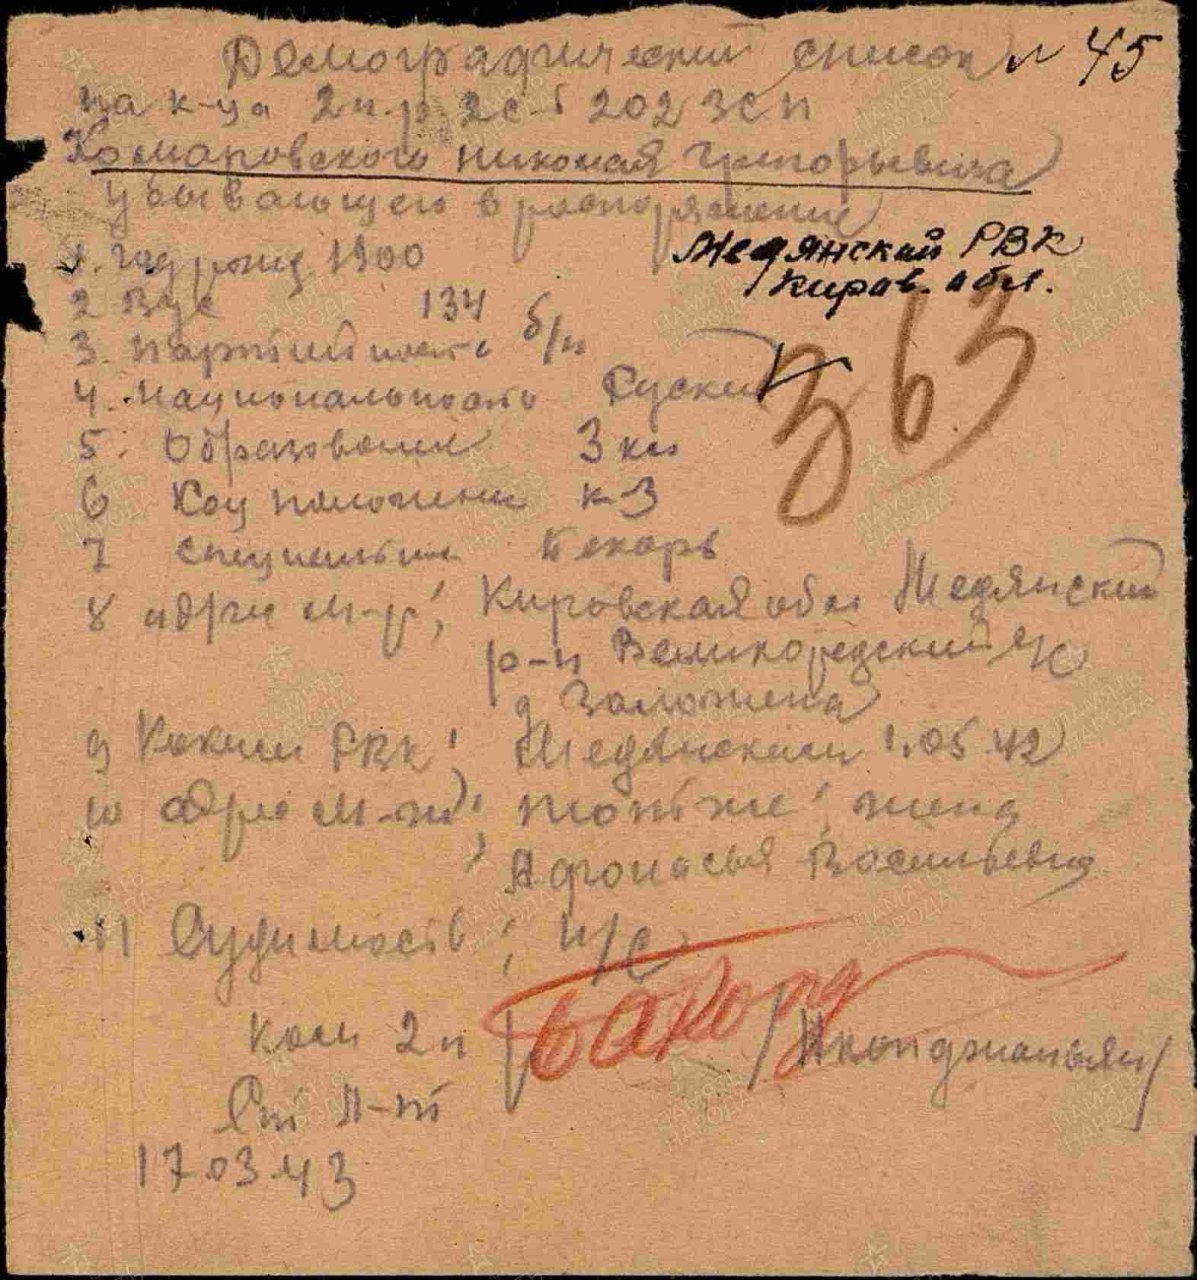 Демографический список № 45
на к-ца 2 п-р 2 с-б 202 ЗСП
Комаровского Николая Григорьевича
убывающего в распоряжение
Медянский РВК
Киров. обл.
1. Год рожд 1900
2 Вус 134
3. Партийность б/п
363
4. Национальность Руский
5. Образование 3 кл
6 Соц положение к-з
7 Специальность Пекарь
8 адрес м-р; Кировская обл Медянский
р-н Великоредский с/с
д Заложена
9 Каким РВК; Медянским 1.05.42
10 адрес м-ж; тот же; жена
Афонасья Васильевна
11 Судимость; н/с
Ком 2 п
Ст Л-нт
17.03.43